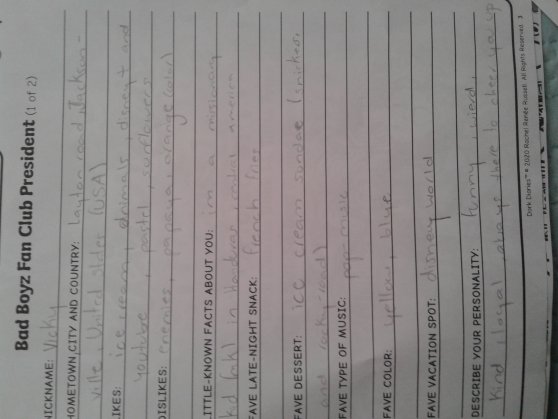 Bad Boyz Fan Club President (1 of 2)
NICKNAME: Vicky
HOMETOWN, CITY AND COUNTRY: Layton road, Jackson-
ville United States (USA)
LIKES: ice cream, animals, disney+ and
Youtube, pastel, sunflowers.
DISLIKES: enemies, papaya, orange (color)
LITTLE-KNOWN FACTS ABOUT YOU: im a misionary
kd (mk) in Honduras, central america
FAVE LATE-NIGHT SNACK: french fries
FAVE DESSERT: ice cream sundae (snickers,
and rocky-road)
FAVE TYPE OF MUSIC: pop-music
FAVE COLOR: yellow, blue
FAVE VACATION SPOT: disney world
DESCRIBE YOUR PERSONALITY: funny, wierd,
kind, loyal, always there to cheer you up
Dork Diaries™ © 2020 Rachel Renée Russell. All Rights Reserved. 3